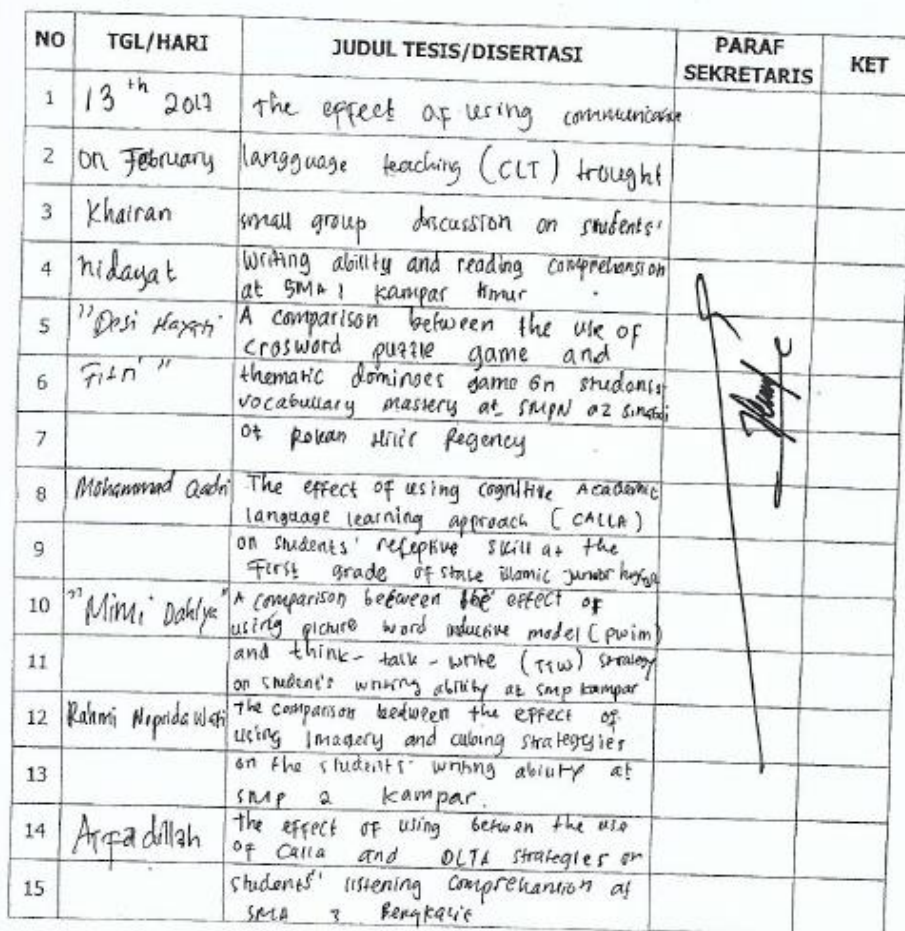 NO TGL/HARI JUDUL TESIS/DISERTASI PARAF SEKRETARIS KET
1 13 th 2017 The effect of using communicative
2 on February langguage teaching (CLT) trought
3 Khairan small group discussion on students'
4 hidayat writing ability and reading comprehension
at SMA 1 Kampar timur
5 "Desi Hayati A comparison between the use of
crosword puzzle game and
6 Fitri" thematic dominoes game on students
vocabullary mastery at SMPN 02
7 of Rokan Hilir Regency
8 Mohammad Qadri The effect of using cognitive Academic
language learning approach (CALLA)
9 on students' refeptive skill at the
First grade of state islamic junior
10 "Mimi Dahlya" A comparison between the effect of
using picture word inductive model (pwim)
11 and think - talk - write (TTW) strategy
on student's writing ability at smp kampar
12 Rahmi The comparison between the effect of
using Imagery and cubing strategyies
13 on the students' writing ability at
SMP 2 Kampar.
14 Arfadillah the effect of using between the use
of Calla and DLTA strategies on
15 students' listening comprehantion at
SMA 3 Bengkalis